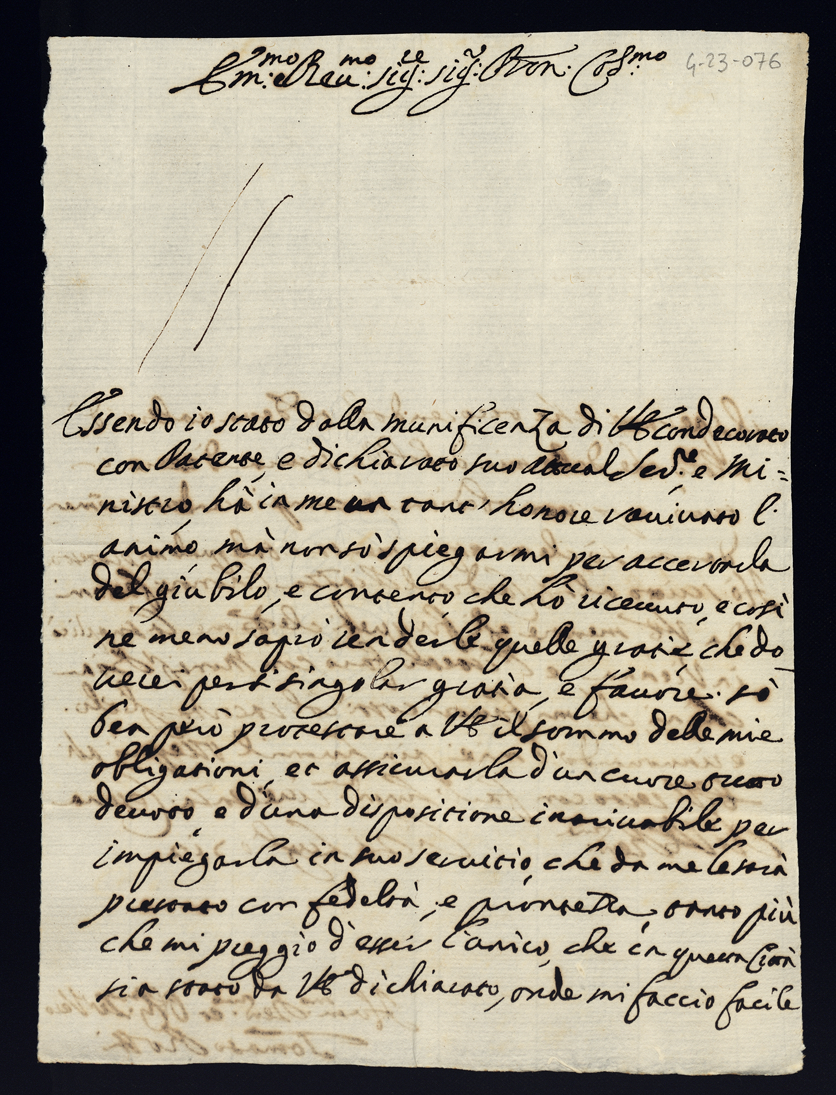 Em:mo e Reu:mo sig:re sig:r Pron: Col:mo
4-23-076
Essendo io stato dalla munificenza di VE condecorato
con Patente, e dichiarato suo attual Ser.re e Mi=
nistro, hà in me un tant' honore rauiuato l'
animo mà non sò spiegarmi per accertarla
del giubilo, e contento che hò riceuuto, e così
ne meno saprò renderle quelle gratie, che do
uerei per sì singolar gratia, e fauore. sò
ben però protestare a VE il sommo delle mie
obligationi, et assicurarla d'un cuore tutto
deuoto e d'una dispositione inariuabile per
impiegarla in suo seruitio, che da me le sarà
prestato con fedeltà, e prontezza, tanto più
che mi preggio d'esser l'unico, che in questa Città
sia stato da VE dichiarato, onde mi faccio facile
Tomaso